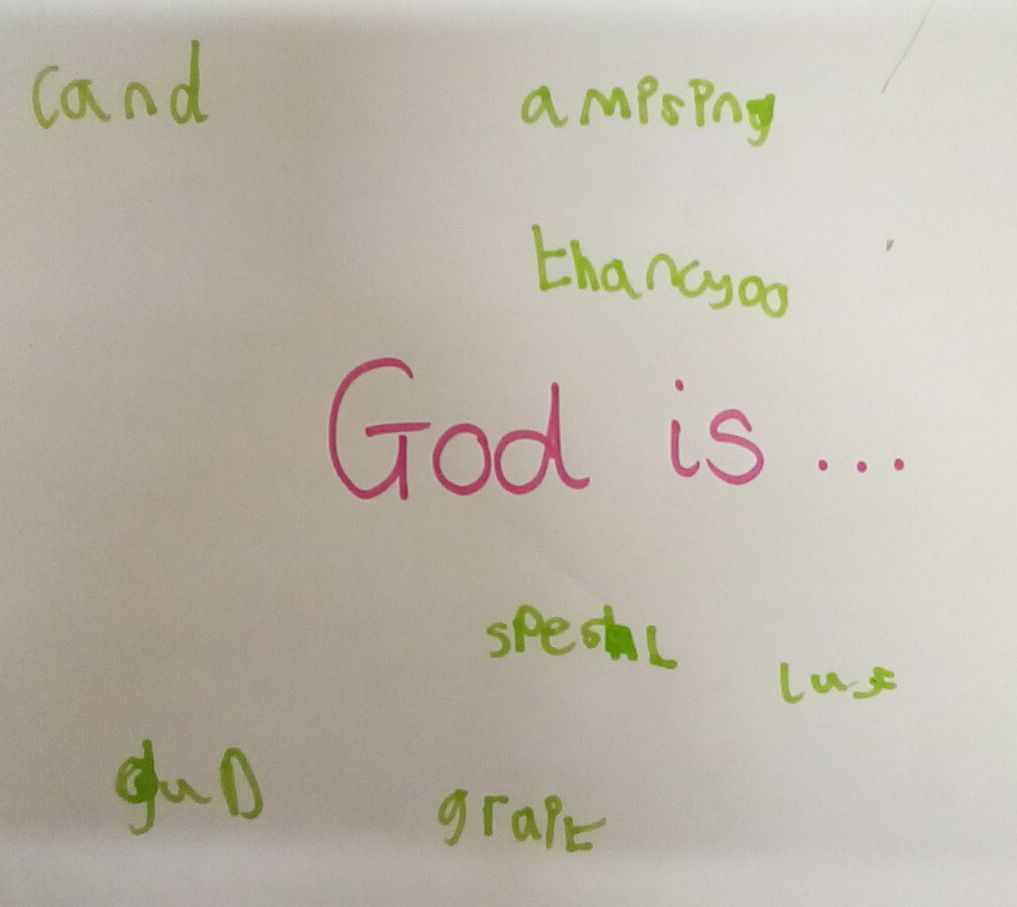 cand
amising
thancyoo
God is ...
speshL
luf
guD
grait